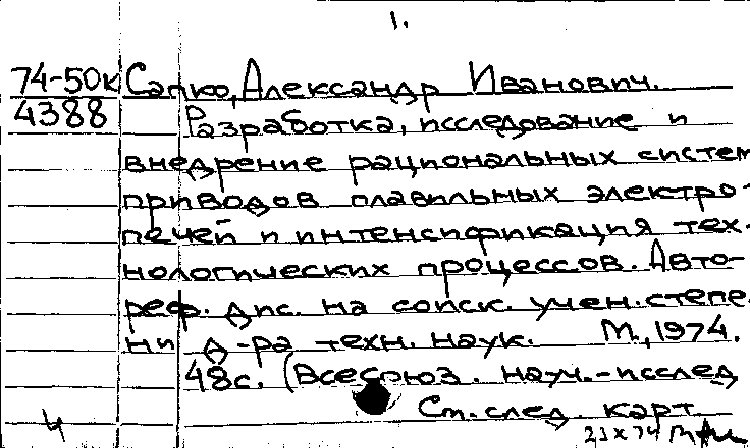 1.
74-50к Сапко, Александр Иванович.
4388 Разработка, исследование и
внедрение рациональных систем
приводов плавильных электро-
печей и интенсификация тех-
нологических процессов. Авто-
реф. дис. на соиск. учен. степе
ни д-ра техн. наук. М., 1974.
48с. (Всесоюз. науч.-исслед
См. след. карт.
4
23 X 74